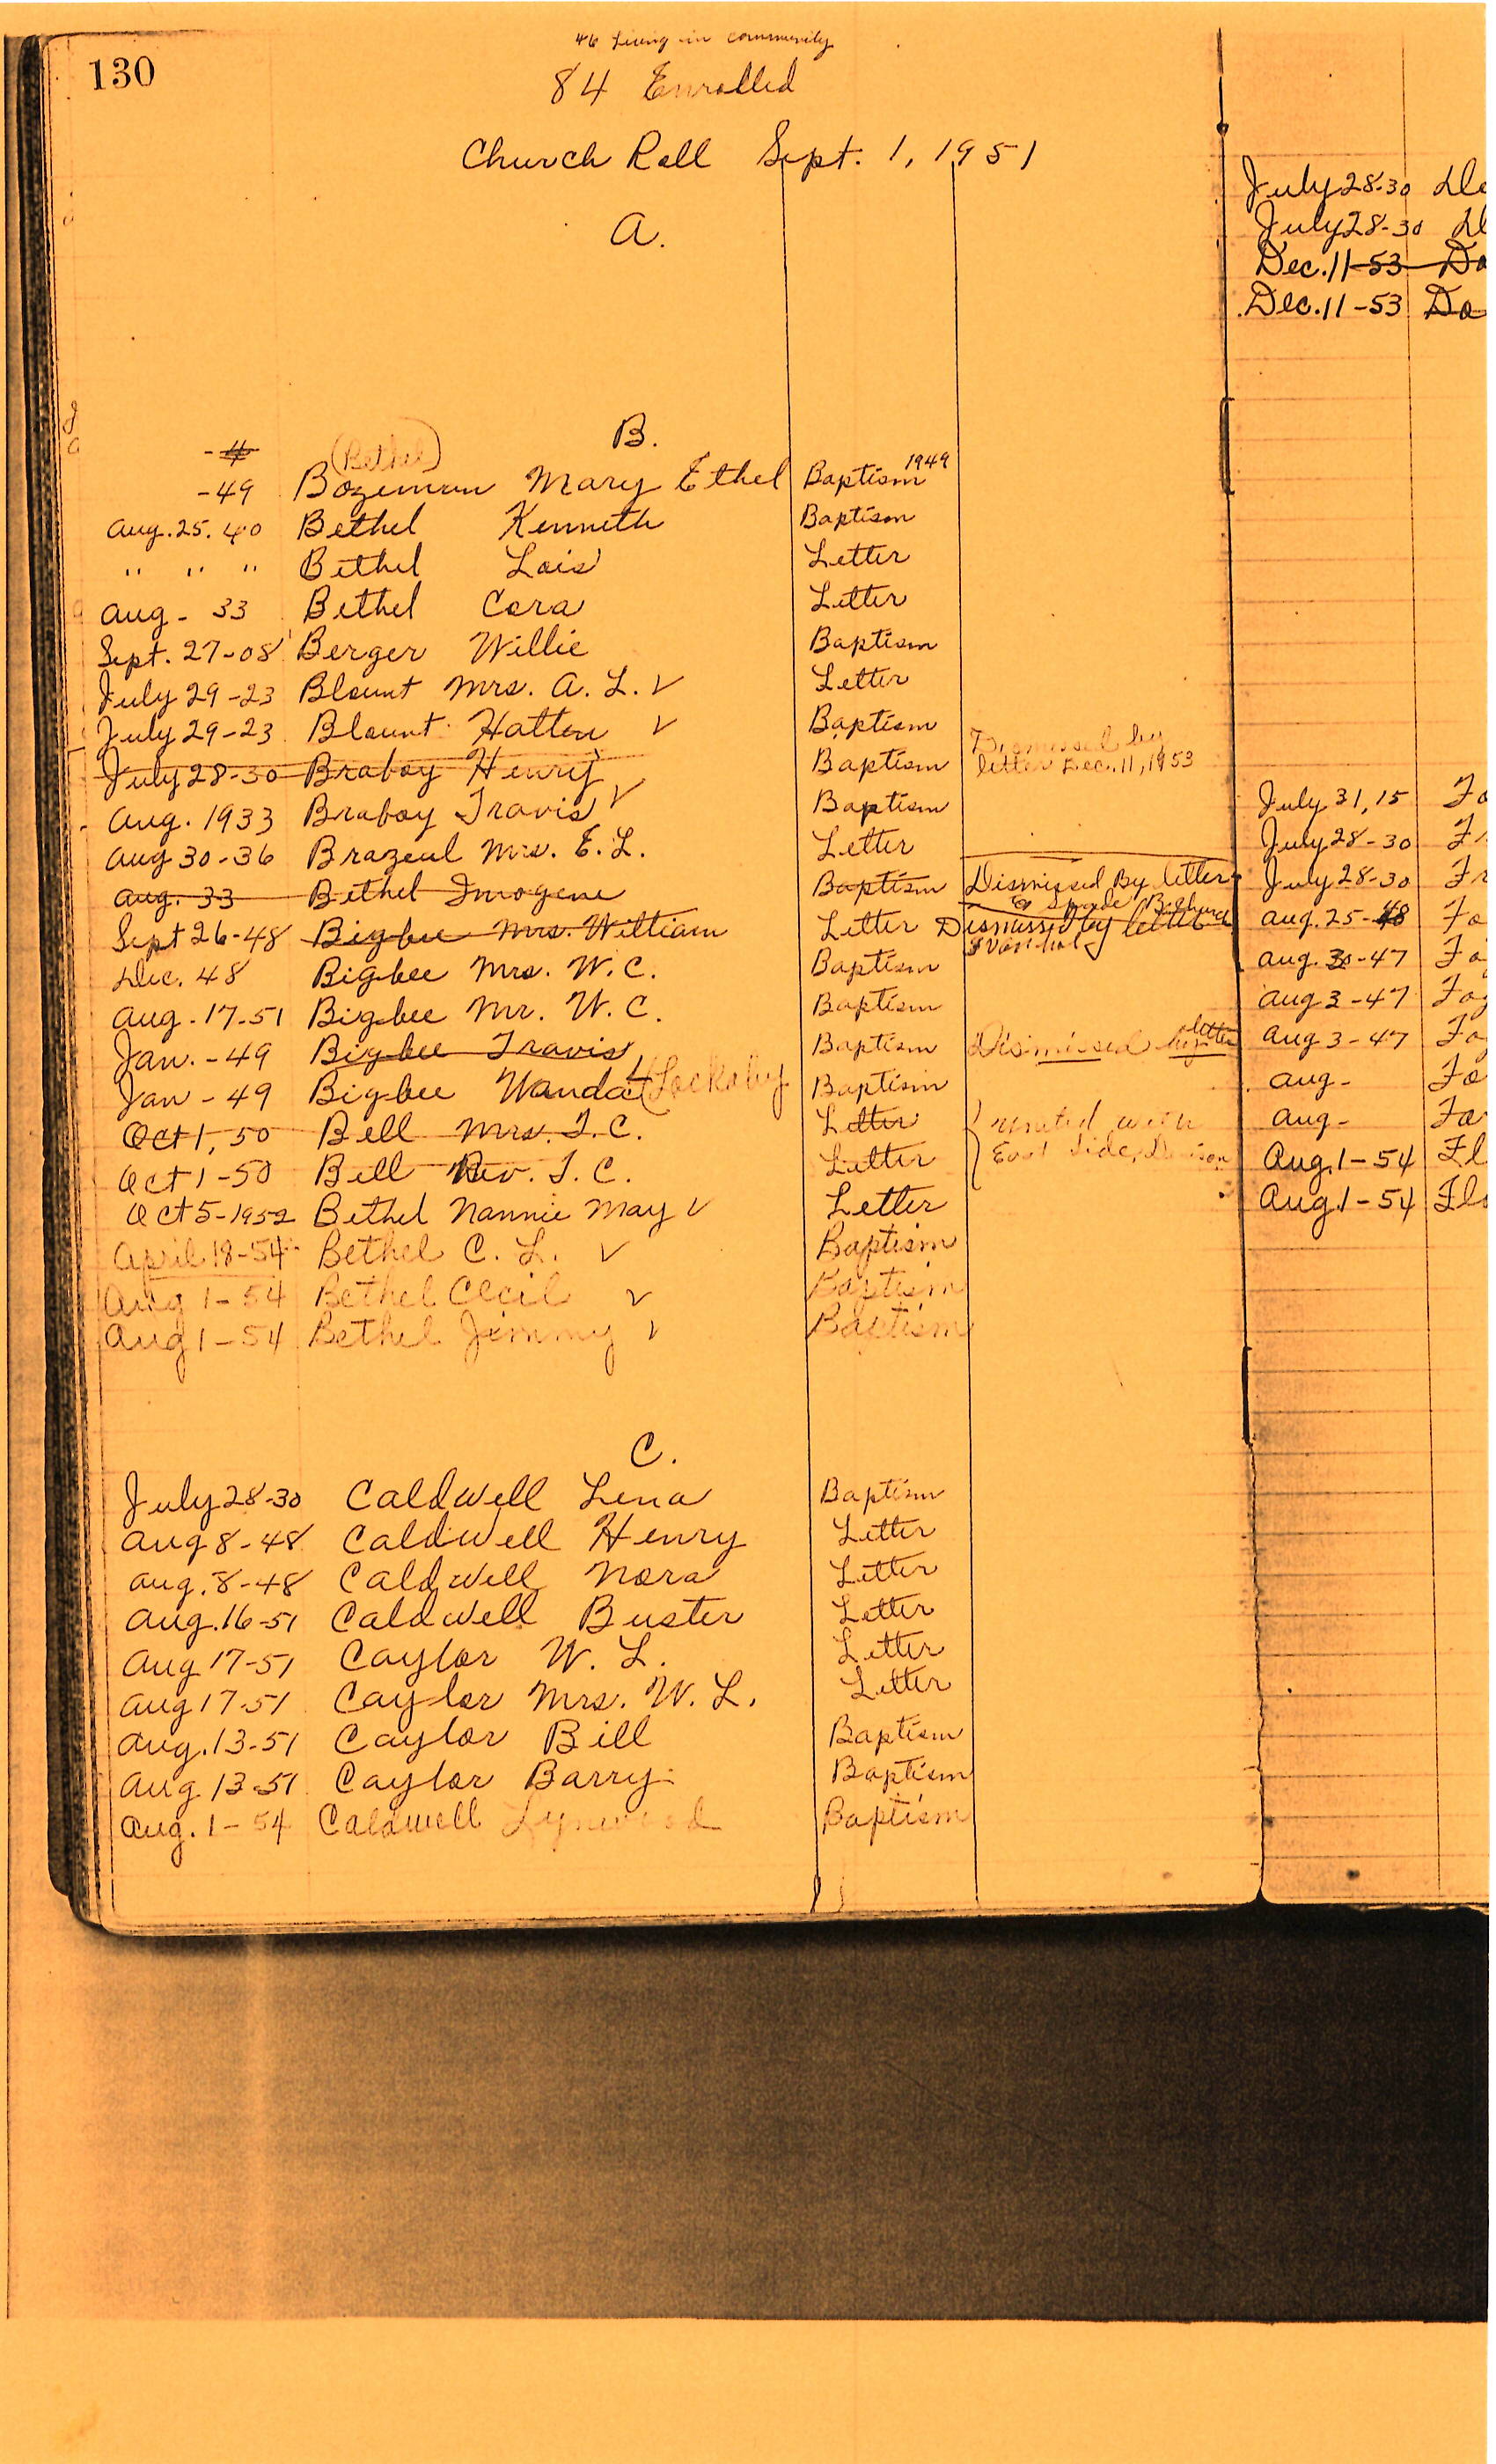 46 Living in community
130
84 Enrolled
Church Roll Sept. 1, 1951
A.
B.
- 4 (Bethel)
-49 Bozeman Mary Ethel Baptism 1949
Aug. 25. 40 Bethel Kenneth Baptism
" " " Bethel Lois Letter
Aug - 33 Bethel Cora Letter
Sept. 27-08 Berger Willie Baptism
July 29-23 Blount Mrs. A. L. ✓ Letter
July 29-23 Blount Hatten ✓ Baptism
July 28-30 Braboy Henry Baptism Dismissed by
letter Dec. 11, 1953
Aug. 1933 Braboy Travis ✓ Baptism
Aug 30-36 Brazeul Mrs. E. L. Letter
Aug. 33 Bethel Imogene Baptism Dismissed By letter
to
Sept 26-48 Bigbee Mrs. William Letter Dismissed by letter
Dec. 48 Bigbee Mrs. W. C. Baptism
Aug. 17-51 Bigbee Mr. W. C. Baptism
Jan. - 49 Bigbee Travis Baptism Dismissed by letter
Jan - 49 Bigbee Wanda ✓ (Lockaby Baptism
Oct 1, 50 Bell Mrs. T. C. Letter } united with
Oct 1-50 Bell Rev. T. C. Letter East Side, Denison
Oct 5-1952 Bethel Nannie May ✓ Letter
April 18-54 Bethel C. L. ✓ Baptism
Aug 1-54 Bethel Cecil ✓ Baptism
Aug 1-54 Bethel Jimmy ✓ Baptism
C.
July 28-30 Caldwell Lena Baptism
Aug 8-48 Caldwell Henry Letter
Aug. 8-48 Caldwell Nora Letter
Aug. 16-51 Caldwell Buster Letter
Aug 17-51 Caylor W. L. Letter
Aug 17-51 Caylor Mrs. W. L. Letter
Aug. 13-51 Caylor Bill Baptism
Aug 13-51 Caylor Barry Baptism
Aug. 1-54 Caldwell Lynwood Baptism
July 28-30
July 28-30
Dec. 11-53 Do
Dec. 11-53 Do
July 31, 15 Fo
July 28-30 Fr
July 28-30 Fr
Aug. 25-48 Fo
Aug. 30-47 Fo
Aug 3-47 Fo
Aug 3-47 Fo
Aug - Fo
Aug - Fo
Aug. 1-54 Fl
Aug. 1-54 Flo